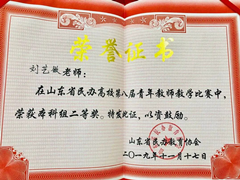 荣誉证书
刘艺敏老师：
在山东省民办高校第八届青年教师教学比赛中，
荣获本科组二等奖。特发此证，以资鼓励。
山东省民办教育协会
二〇一九年十一月十七日